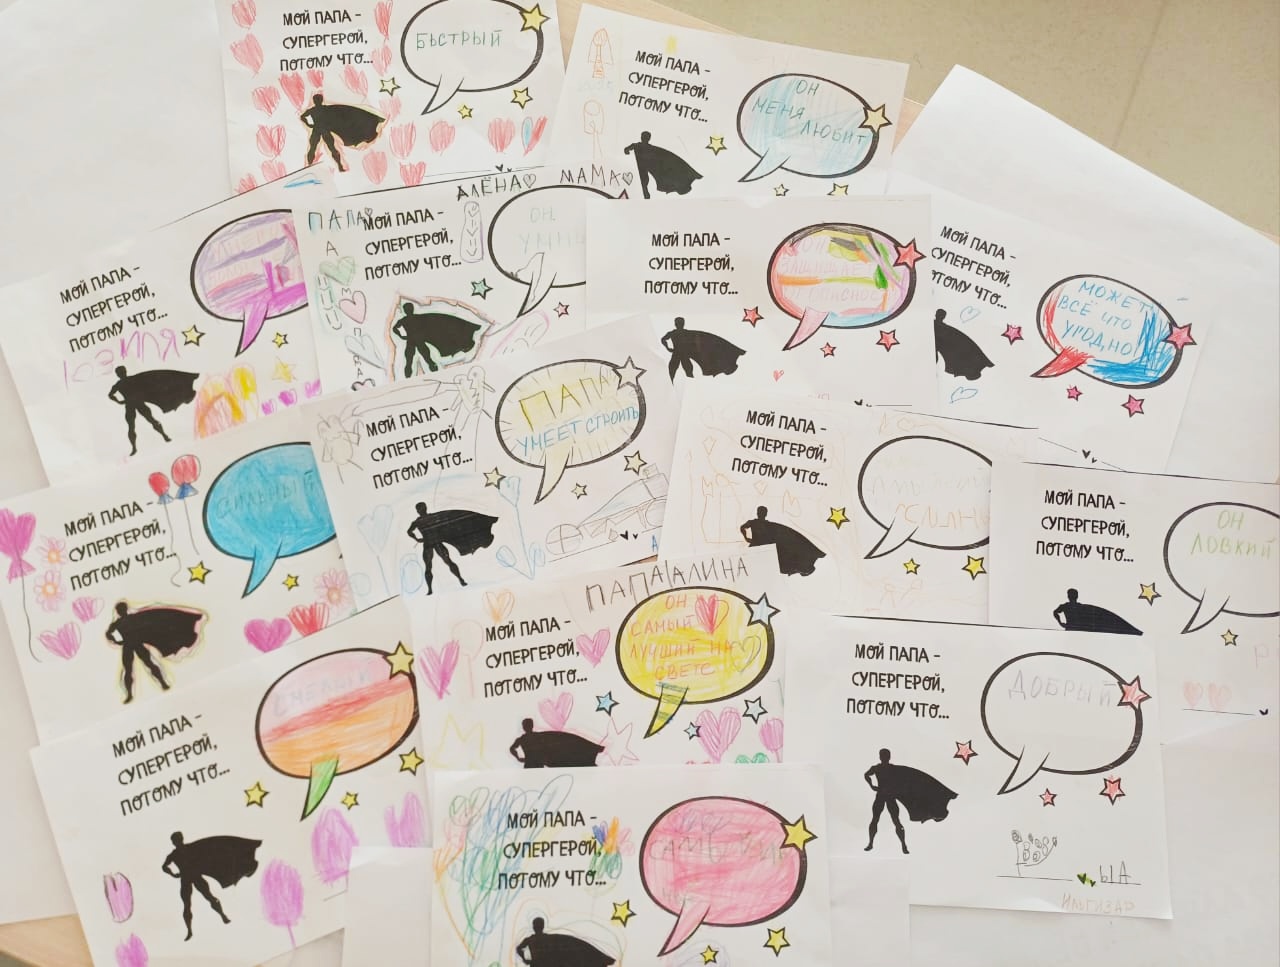 МОЙ ПАПА -
СУПЕРГЕРОЙ,
ПОТОМУ ЧТО...
БЫСТРЫЙ
МОЙ ПАПА -
СУПЕРГЕРОЙ,
ПОТОМУ ЧТО...
ОН
МЕНЯ
ЛЮБИТ
МОЙ ПАПА -
СУПЕРГЕРОЙ,
ПОТОМУ ЧТО...
АЛЁНА МАМА
ПАПА
МОЙ ПАПА -
СУПЕРГЕРОЙ,
ПОТОМУ ЧТО...
ОН
УМНЫ
МОЙ ПАПА -
СУПЕРГЕРОЙ,
ПОТОМУ ЧТО...
ЗАЩИЩАЕ
МОЙ ПАПА -
СУПЕРГЕРОЙ,
ПОТОМУ ЧТО...
МОЖЕТ
ВСЁ ЧТО
УГОДНО!
МОЙ ПАПА -
СУПЕРГЕРОЙ,
ПОТОМУ ЧТО...
ПАПА
УМЕЕТ СТРОИТЬ
МОЙ ПАПА -
СУПЕРГЕРОЙ,
ПОТОМУ ЧТО...
МОЙ ПАПА -
СУПЕРГЕРОЙ,
ПОТОМУ ЧТО...
СИЛЬНЫЙ
МОЙ ПАПА -
СУПЕРГЕРОЙ,
ПОТОМУ ЧТО...
ОН
ЛОВКИЙ
ПАПА АЛИНА
МОЙ ПАПА -
СУПЕРГЕРОЙ,
ПОТОМУ ЧТО...
ОН
САМЫЙ
ЛУЧШИЙ НА
СВЕТЕ
МОЙ ПАПА -
СУПЕРГЕРОЙ,
ПОТОМУ ЧТО...
СМЕЛЫЙ
МОЙ ПАПА -
СУПЕРГЕРОЙ,
ПОТОМУ ЧТО...
ДОБРЫЙ
ЫА
ИЛЬГИЗАР
МОЙ ПАПА -
СУПЕРГЕРОЙ,
ПОТОМУ ЧТО...